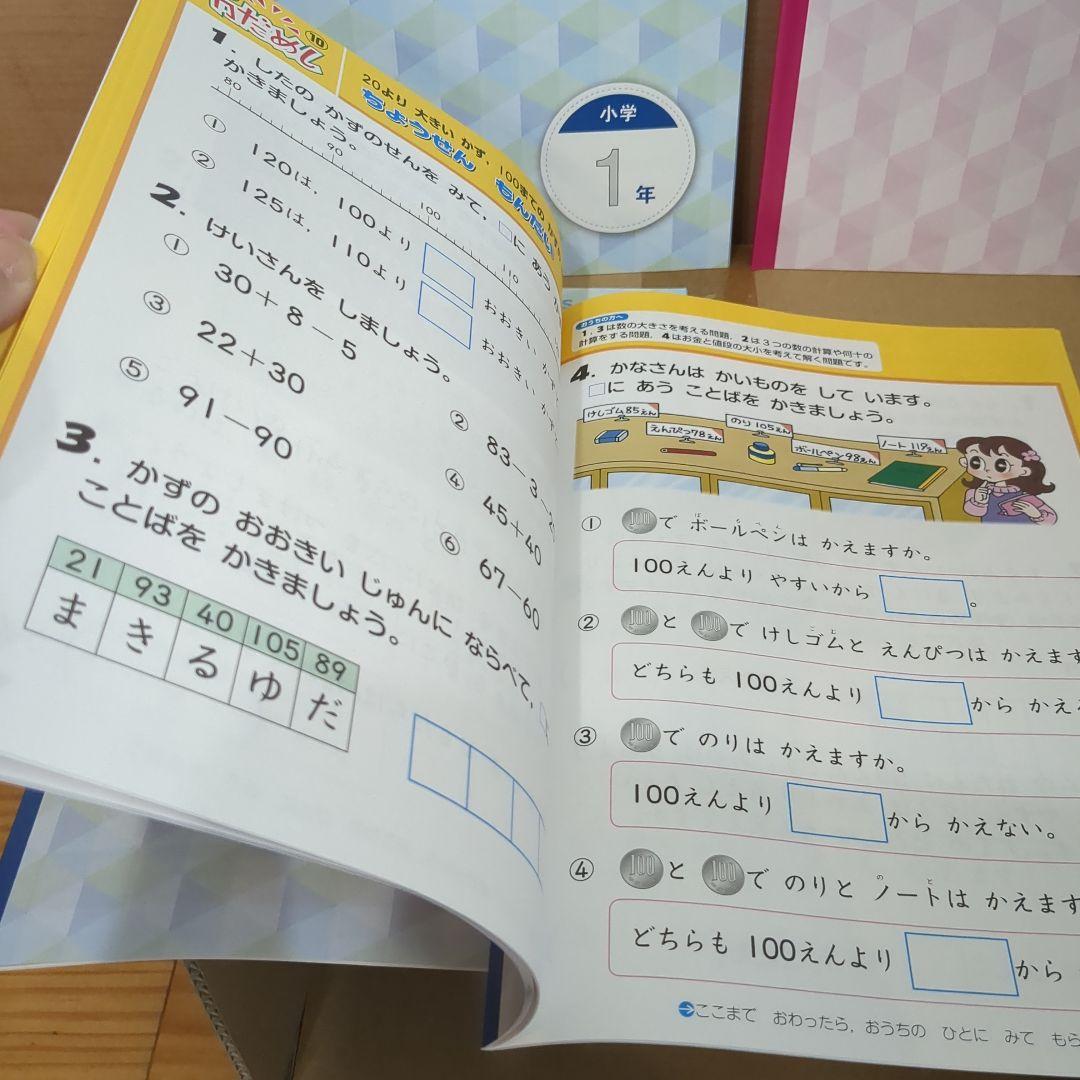 力だめし
10
20より 大きい かず，100までの かず
ちょうせん もんだい
1. したの かずのせんを みて，□に あう
かきましょう。
80
90
100
110
① 120は，100より □ おおきい かず
② 125は，110より □ おおきい かず
2. けいさんを しましょう。
① 30＋8－5
② 83－3－
③ 22＋30
④ 45＋40
⑤ 91－90
⑥ 67－60
3. かずの おおきい じゅんに ならべて，
ことばを かきましょう。
21 93 40 105 89
ま き る ゆ だ
小学
1
年
おうちの方へ
1，3は数の大きさを考える問題，2は3つの数の計算や何十の
計算をする問題，4はお金と値段の大小を考えて解く問題です。
4. かなさんは かいものを して います。
□に あう ことばを かきましょう。
けしゴム85えん
えんぴつ78えん
のり 105えん
ボールペン98えん
ノート 119えん
① 100で ボールペンは かえますか。
100えんより やすいから □。
② 100と 100で けしゴムと えんぴつは かえます
どちらも 100えんより □から かえ
③ 100で のりは かえますか。
100えんより □から かえない。
④ 100と 100で のりと ノートは かえます
どちらも 100えんより □から
ここまで おわったら，おうちの ひとに みて もら